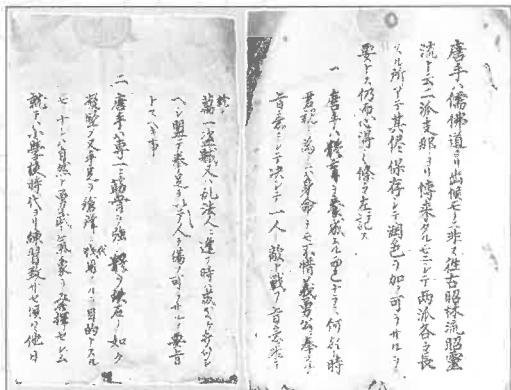 唐手ハ儒佛道ヨリ出候モノニ非ス往古昭林流昭靈
流ト云二派支那ヨリ傳来タルモノニシテ両派各々長
スル所アリテ其侭保存シテ潤色ヲ加ヘ可ラサルヲ
要トス仍而心得ノ條々左記ス
一 唐手ハ體育ヲ養成スル而已ナラス何レノ時
君親ノ為メニハ身命ヲモ不惜義勇公ニ奉スルノ
旨意ニシテ決シテ一人ノ敵ト戦フ旨意ニ非ス
就テハ
萬一盗賊又ハ乱法人ニ逢フ時ハ成丈ケ打ハズス
ベシ盟テ拳足ヲ以テ人ヲ傷ケ可ラサルヲ要旨
トスベキ事
二 唐手ハ専一ニ筋骨ヲ強シ體ヲ鉄石ノ如ク
凝堅メ又手足ヲ鎗鋒ニ代用スル目的トスル
モノナレハ自然ト勇武ノ氣象ヲ發揮セシム
就テハ小學校時代ヨリ練習致サセ候ハ他日